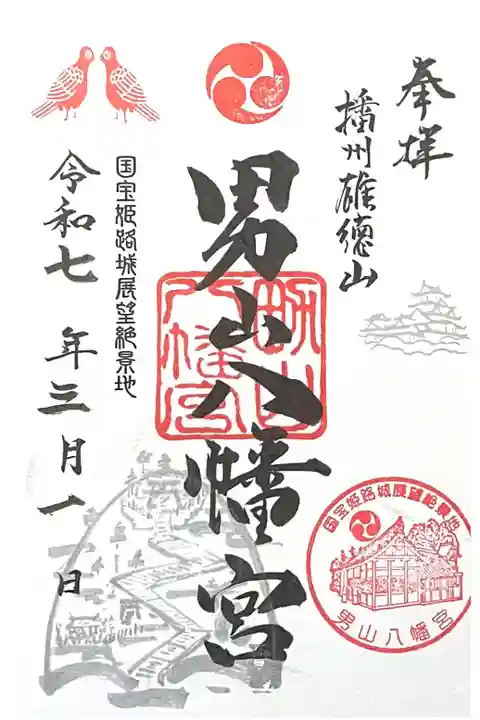 奉拝
播州雄徳山
男山八幡宮
男山八幡宮
国宝姫路城展望絶景地
令和七年三月一日
国宝姫路城展望絶景地
男山八幡宮